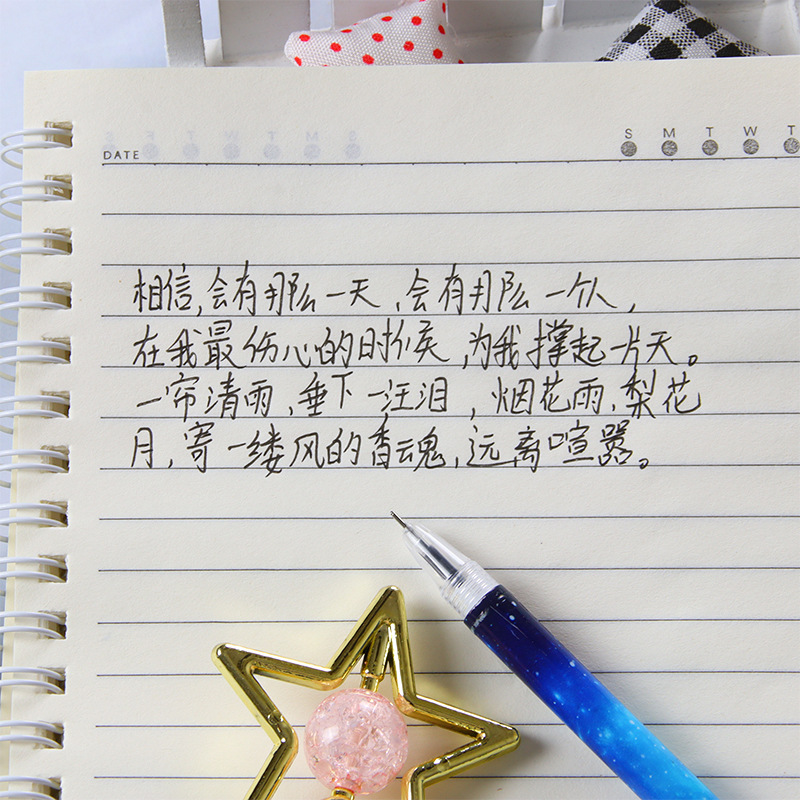 DATE
S M T W T
相信,会有那么一天,会有那么一个人,
在我最伤心的时候,为我撑起一片天。
一帘清雨,垂下一汪泪,烟花雨,梨花
月,寄一缕风的香魂,远离喧嚣。